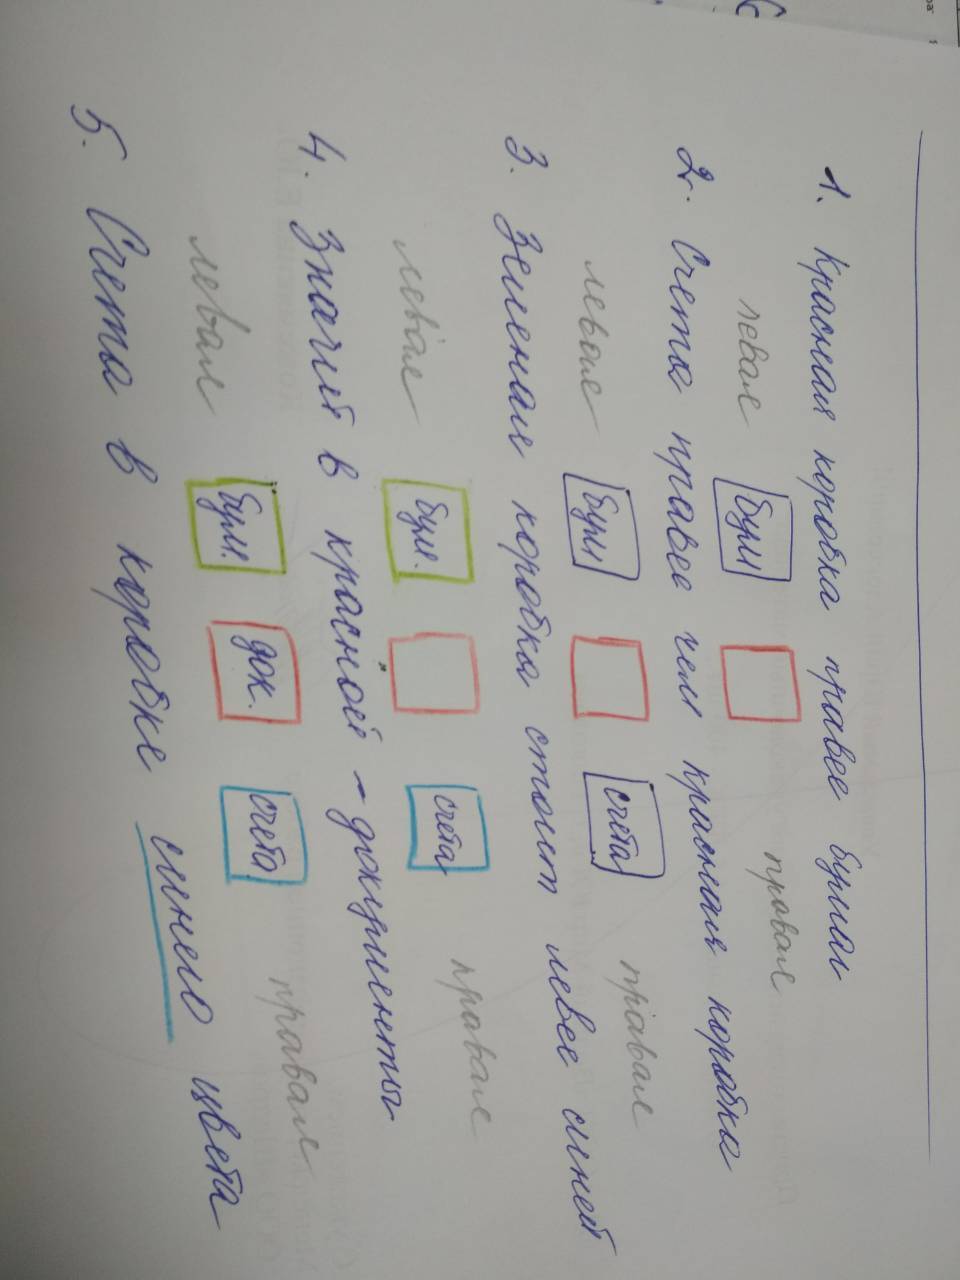 1. Красная коробка правее бумаг
левая бум правая
2. Счета правее чем красная коробка
левая бум счета правая
3. Зеленая коробка стоит левее синей
левая бум. счета правая
4. Значит в красной - документы
левая бум. док. счета правая
5. Счета в коробке синего цвета